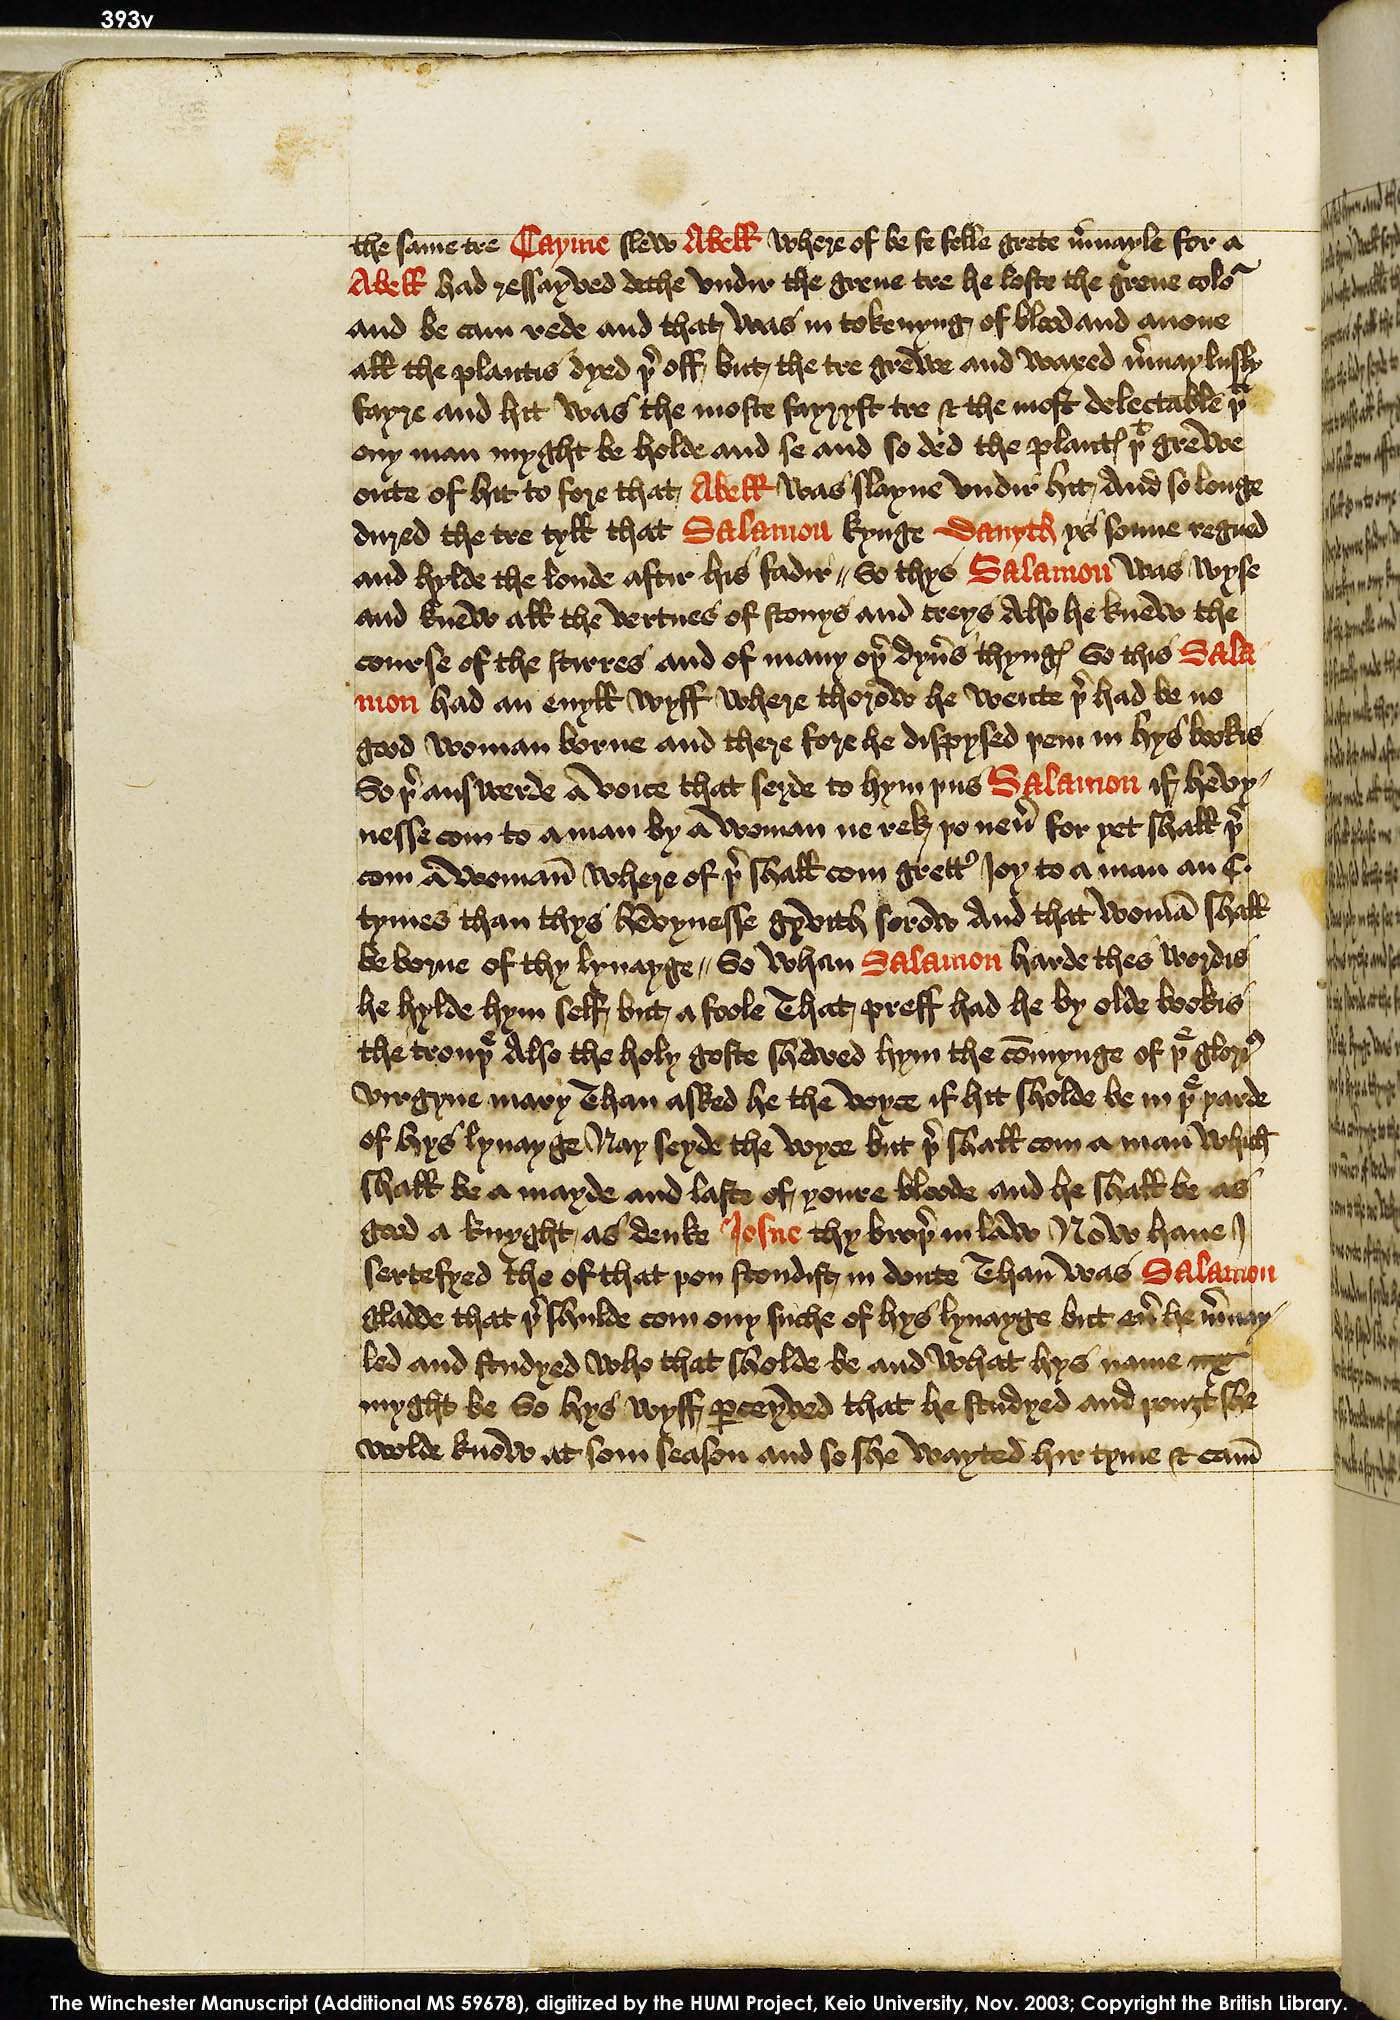 393v
the same tre Cayme slew Abell where of be fe felle grete m̉vayle for a
Abell had ressayved dethe vndir the grene tre he loste the grene coloᷣ
and be cam rede and that was in tokenyng of blood and anone
all the plantis dyed þ̉ off but the tre grewe and waxed m̉vaylusly
fayre and hit was the moste fayryst tre & the most delectable þᵗ
ony man myght be holde and se and so ded the plantꝭ þᵗ grewe
oute of hit to fore that Abell was slayne vndir hit And so longe
dured the tre tyll that Salamon kynge Davyth ys sonne regned
and hylde the londe aftir his fadir // So thys Salamon was wyse
and knew all the vertues of stonys and treys Also he knew the
course of the stirres and of many oþ̉ dyv̉s thyngꝭ So this Sala
mon had an evyll wyff where thorow he wente þ̉ had be no
good woman borne and there fore he dispysed þem in hys bookis
So þ̉ answerde a voice that seyde to hym þus Salamon if hevy-
nesse com to a man by a woman ne rek þo nev̉ for yet shall þ̉
com a woman̄ where of þ̉ shall com grettꝰ Joy to a man an C.
tymes than thys hevynesse gyvith sorow And that womā shall
be borne of thy lynayge // So whan Salamon harde thes wordis
he hylde hym self but a foole That preff had he by olde bookis
the trouþᵉ Also the holy goste shewed hym the cōmynge of þᵉ glorꝰ
virgyne mary Than asked he the voyce if hit sholde be in þᵉ yarde
of hys lynayge Nay seyde the voyce but þ̉ shall com a man̄ which
shall be a mayde and laste of youre bloode and he shall be as
good a knyght as deuke Josue thy broþ̉ in law Now haue I
sertefyed the of that þou stondist in doute Than̄ was Salamon
gladde that þ̉ shulde com ony suche of hys lynayge but ev̉ he m̉vay-
led and studyed who that sholde be and what hys name
myght be So hys wyff ꝑceyved that he studyed and þouȝt she
wolde know at som season and so she wayted hir tyme & cam̄
The Winchester Manuscript (Additional MS 59678), digitized by the HUMI Project, Keio University, Nov. 2003; Copyright the British Library.